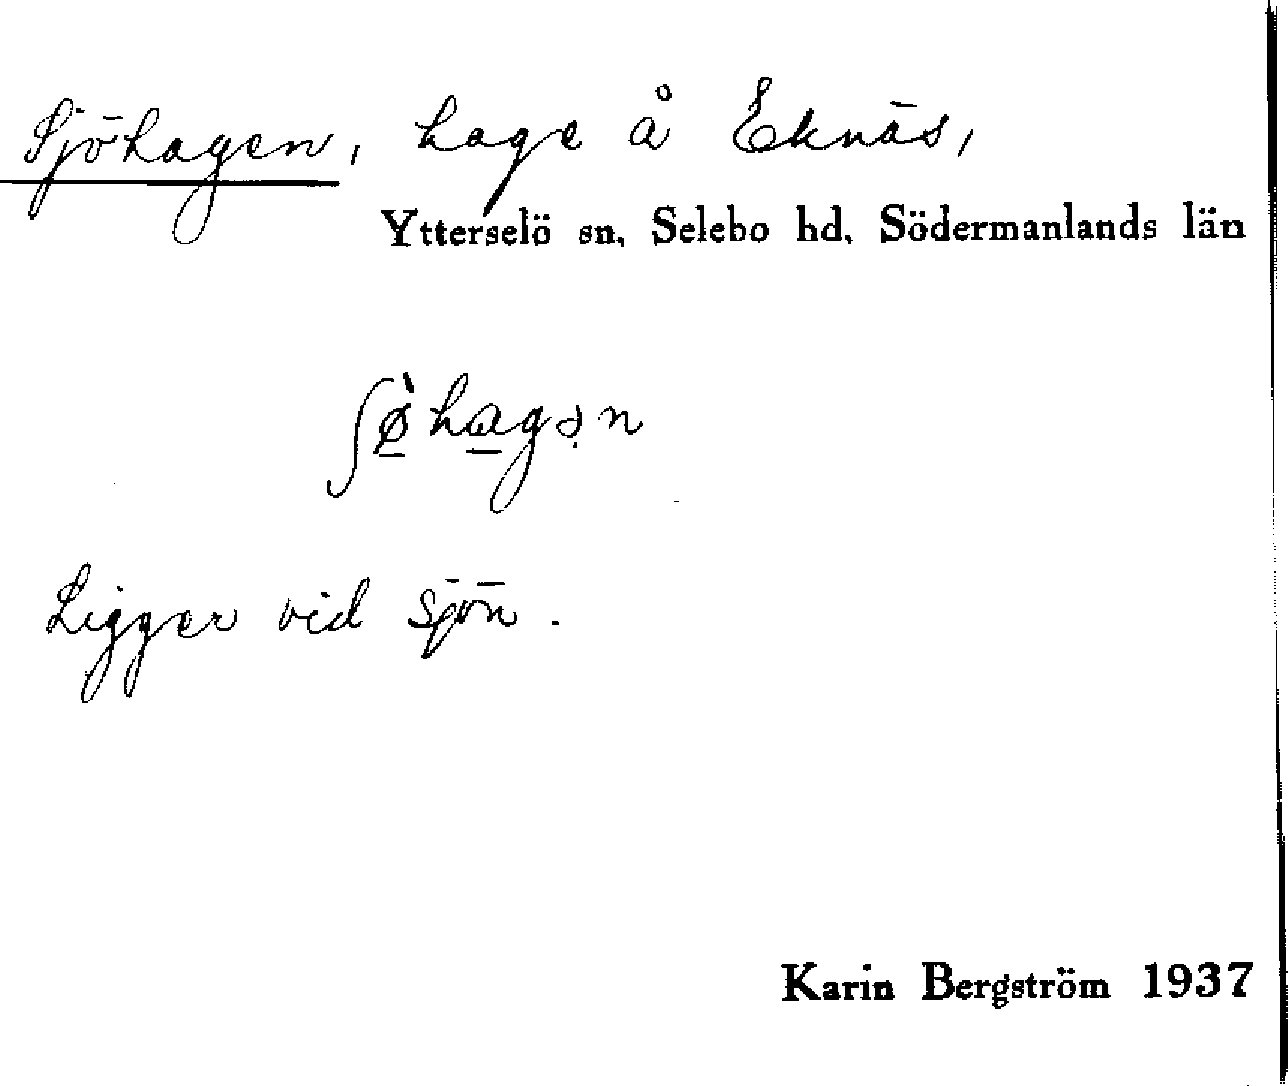 Sjöhagen, hage å Eknäs,
Ytterselö sn, Selebo hd, Södermanlands län
ʃø̱̀ha̱gə̣n
Ligger vid sjön.
Karin Bergström 1937